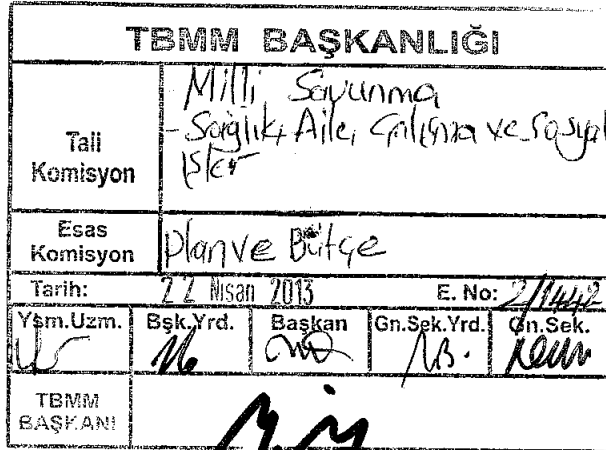 TBMM BAŞKANLIĞI
Tali Komisyon
Milli Savunma
- Sağlık, Aile, Çalışma ve Sosyal
İşler
Esas Komisyon
Plan ve Bütçe
Tarih: 22 Nisan 2013 E. No: 2/1442
Ysm.Uzm. Bşk.Yrd. Başkan Gn.Sek.Yrd. Gn.Sek.
TBMM BAŞKANI